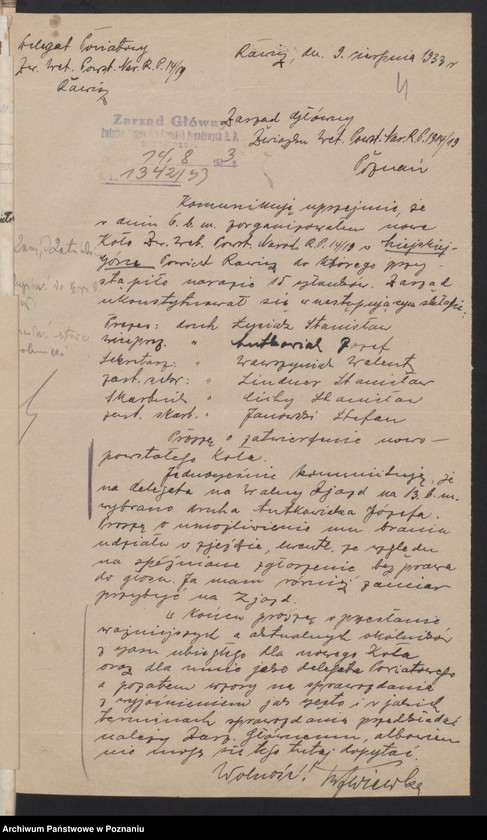 Delegat Powiatowy
Zw. Wet. Powst. Nar. R.P. 14/19
Rawicz
Rawicz, dn. 9. sierpnia 1933 r
4
Zarząd Główny
14. 8 1933.
1342/33
Zarząd Główny
Związku Wet. Powst. Nar. R.P. 1914/19
Poznań
Komunikuję uprzejmie, że
w dniu 6. b. m. zorganizowałem nowe
Koło Zw. Wet. Powst. Narod. R.P. 14/19 w Miejskiej-
Górce Powiat Rawicz do którego przy-
stąpiło narazie 15 członków. Zarząd
ukonstytuował się w następującym składzie:
Prezes: druh Łysiak Stanisław
wiceprez. " Antkowiak Józef
Sekretarz: " Wawrzyniak Walenty
zast. sekr: " Lindner Stanisław
Skarbnik " Cichy Stanisław
zast. skarb. " Janowski Stefan
Proszę o zatwierdzenie nowo-
powstałego Koła.
Jednocześnie komunikuję, że
na delegata na Walny Zjazd na 13. b. m.
wybrano druha Antkowiaka Józefa.
Proszę o umożliwienie mu brania
udziału w zjeździe, ewentl. ze względu
na spóźnione zgłoszenie bez prawa
do głosu. Ja mam również zamiar
przybyć na Zjazd.
W końcu proszę o przesłanie
ważniejszych a aktualnych okólników
z czasu ubiegłego dla nowego Koła
oraz dla mnie jako delegata Powiatowego
a pozatem wzory na sprawozdanie
z wyjaśnieniem jak często i w jakich
terminach sprawozdania przedkładać
należy Zarz. Głównemu, albowiem
nie mogę się tego tutaj dopytać.
Wolność!
Archiwum Państwowe w Poznaniu